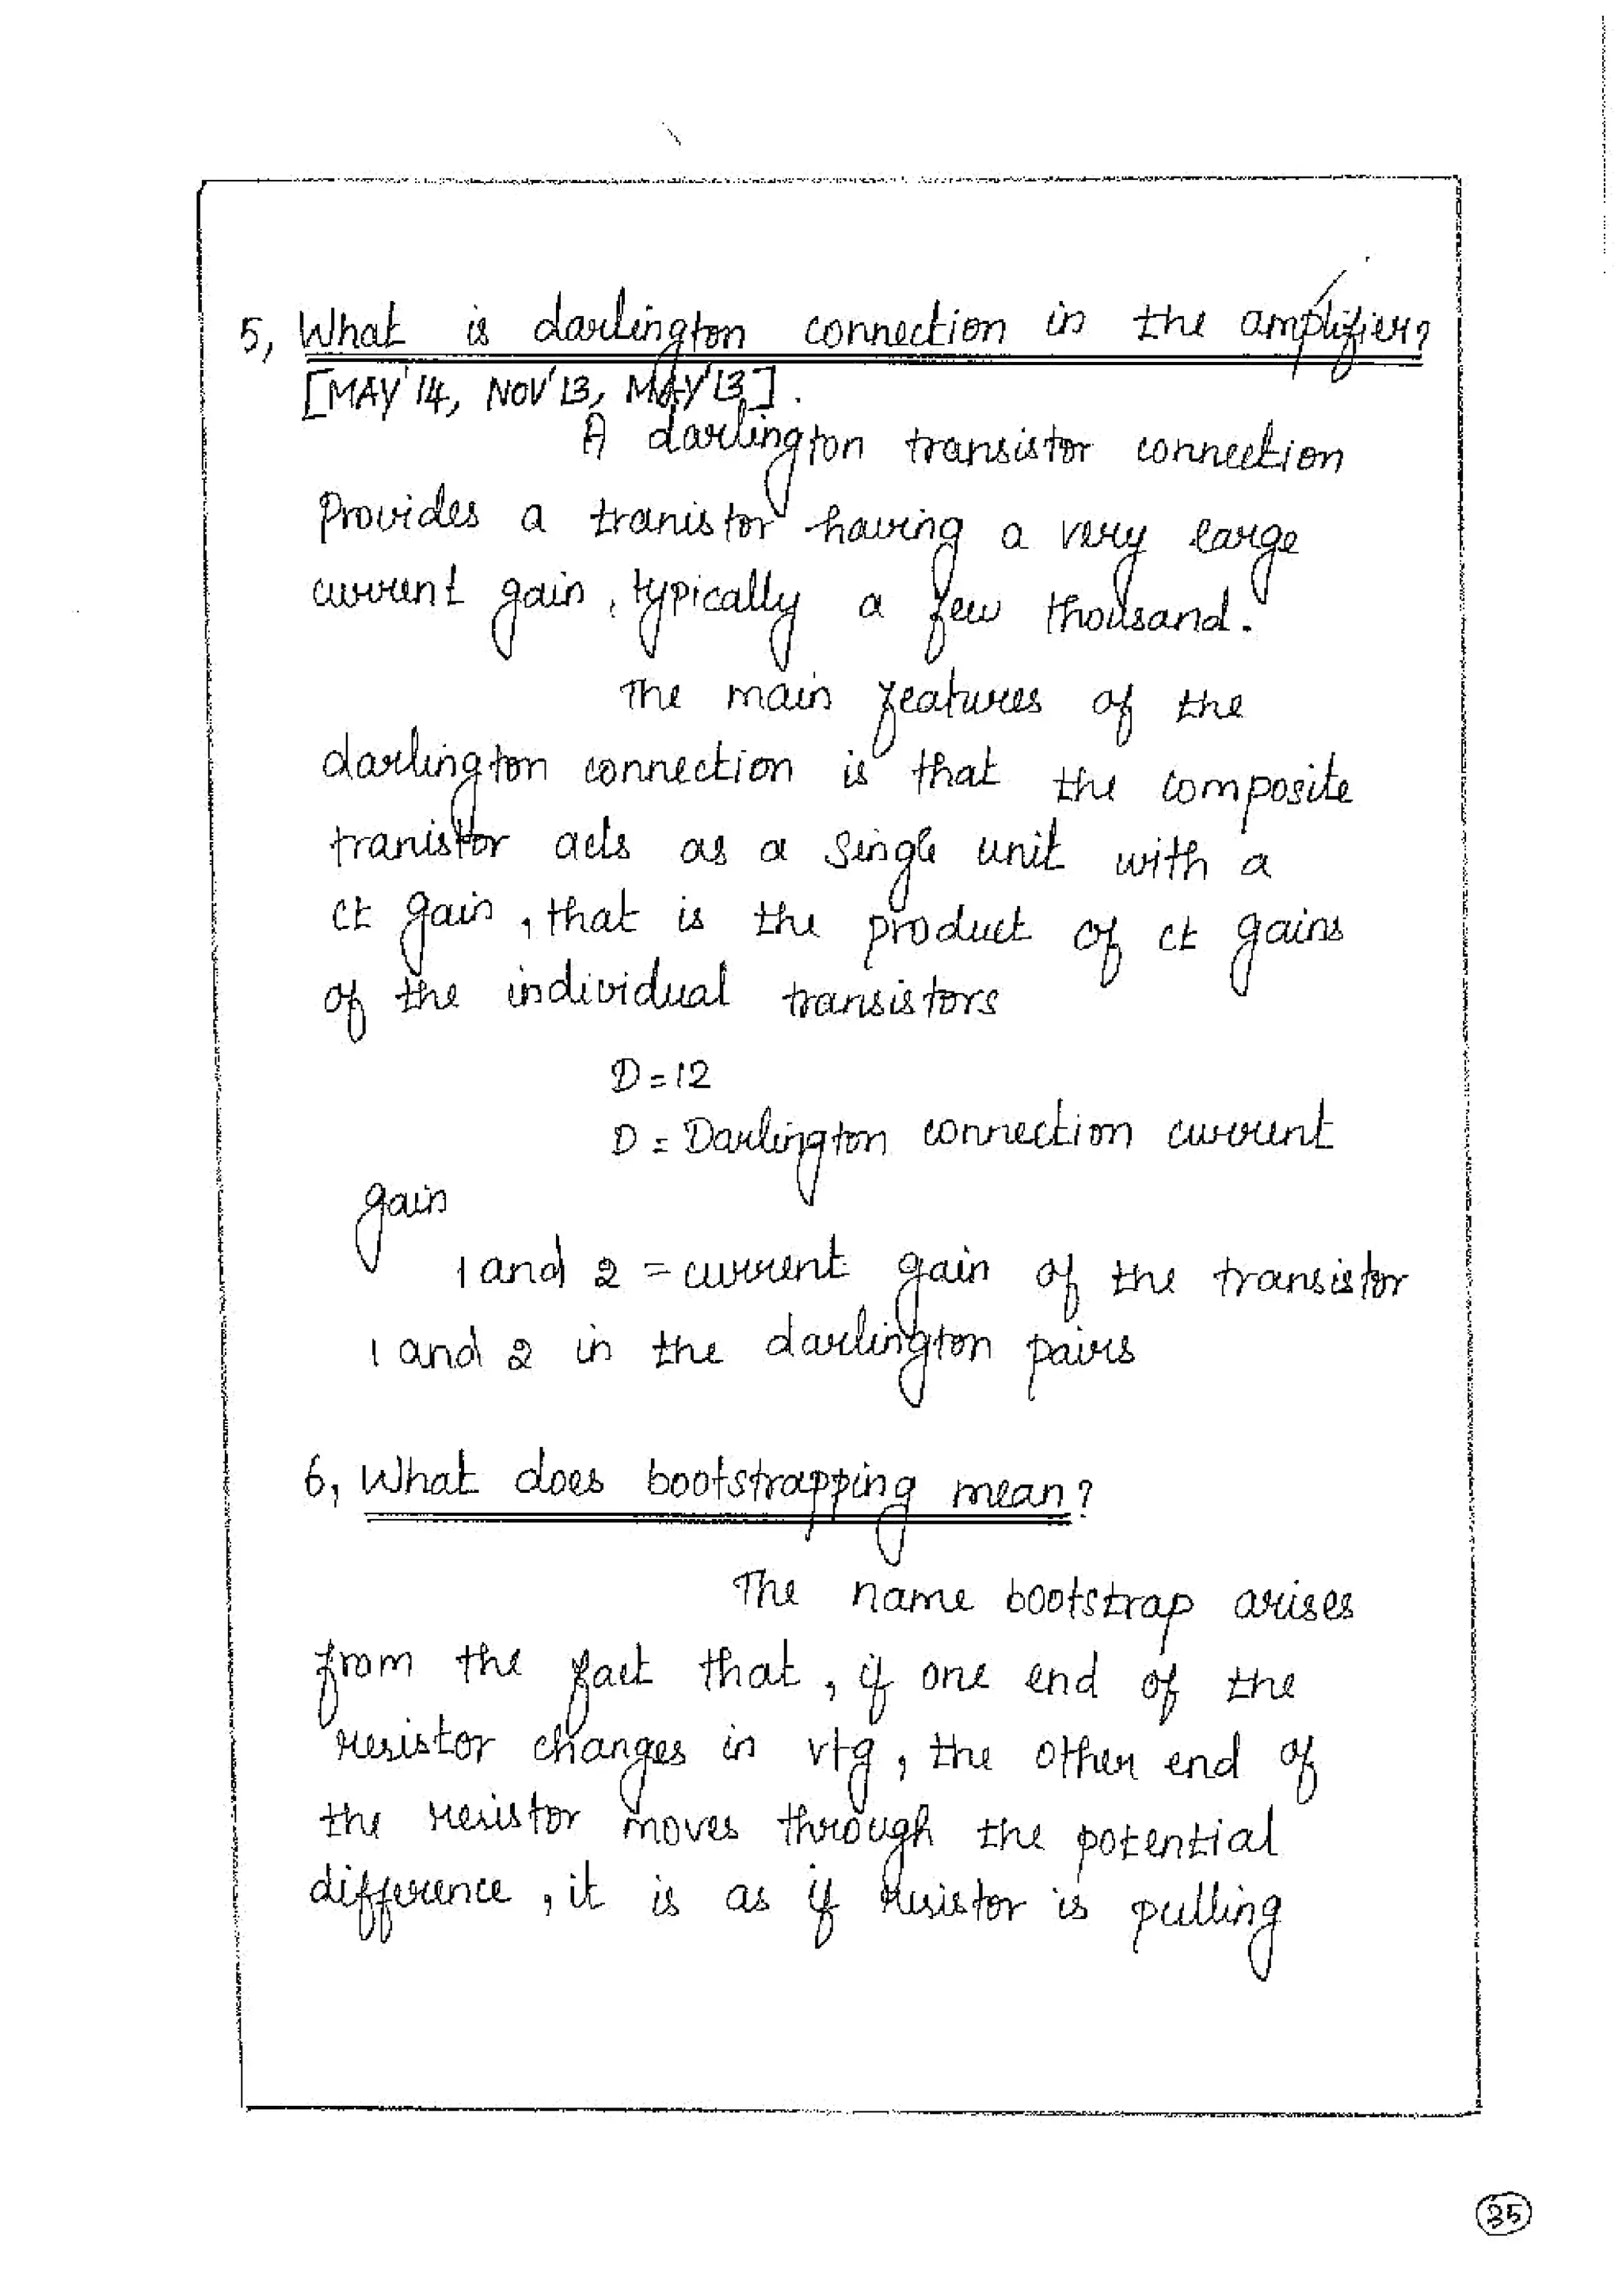 5, What is darlington connection in the amplifier?
[MAY'14, NOV'13, MAY'13].
A darlington transistor connection
Provides a tranistor having a very large
current gain, typically a few thousand.
The main features of the
darlington connection is that the composite
tranistor acts as a single unit with a
ct gain, that is the product of ct gains
of the individual transistors
D=12
D = Darlington connection current
gain
1 and 2 = current gain of the transistor
1 and 2 in the darlington pairs
6, What does bootstrapping mean?
The name bootstrap arises
from the fact that, if one end of the
resistor changes in vtg, the other end of
the resistor moves through the potential
difference, it is as if resistor is pulling
35